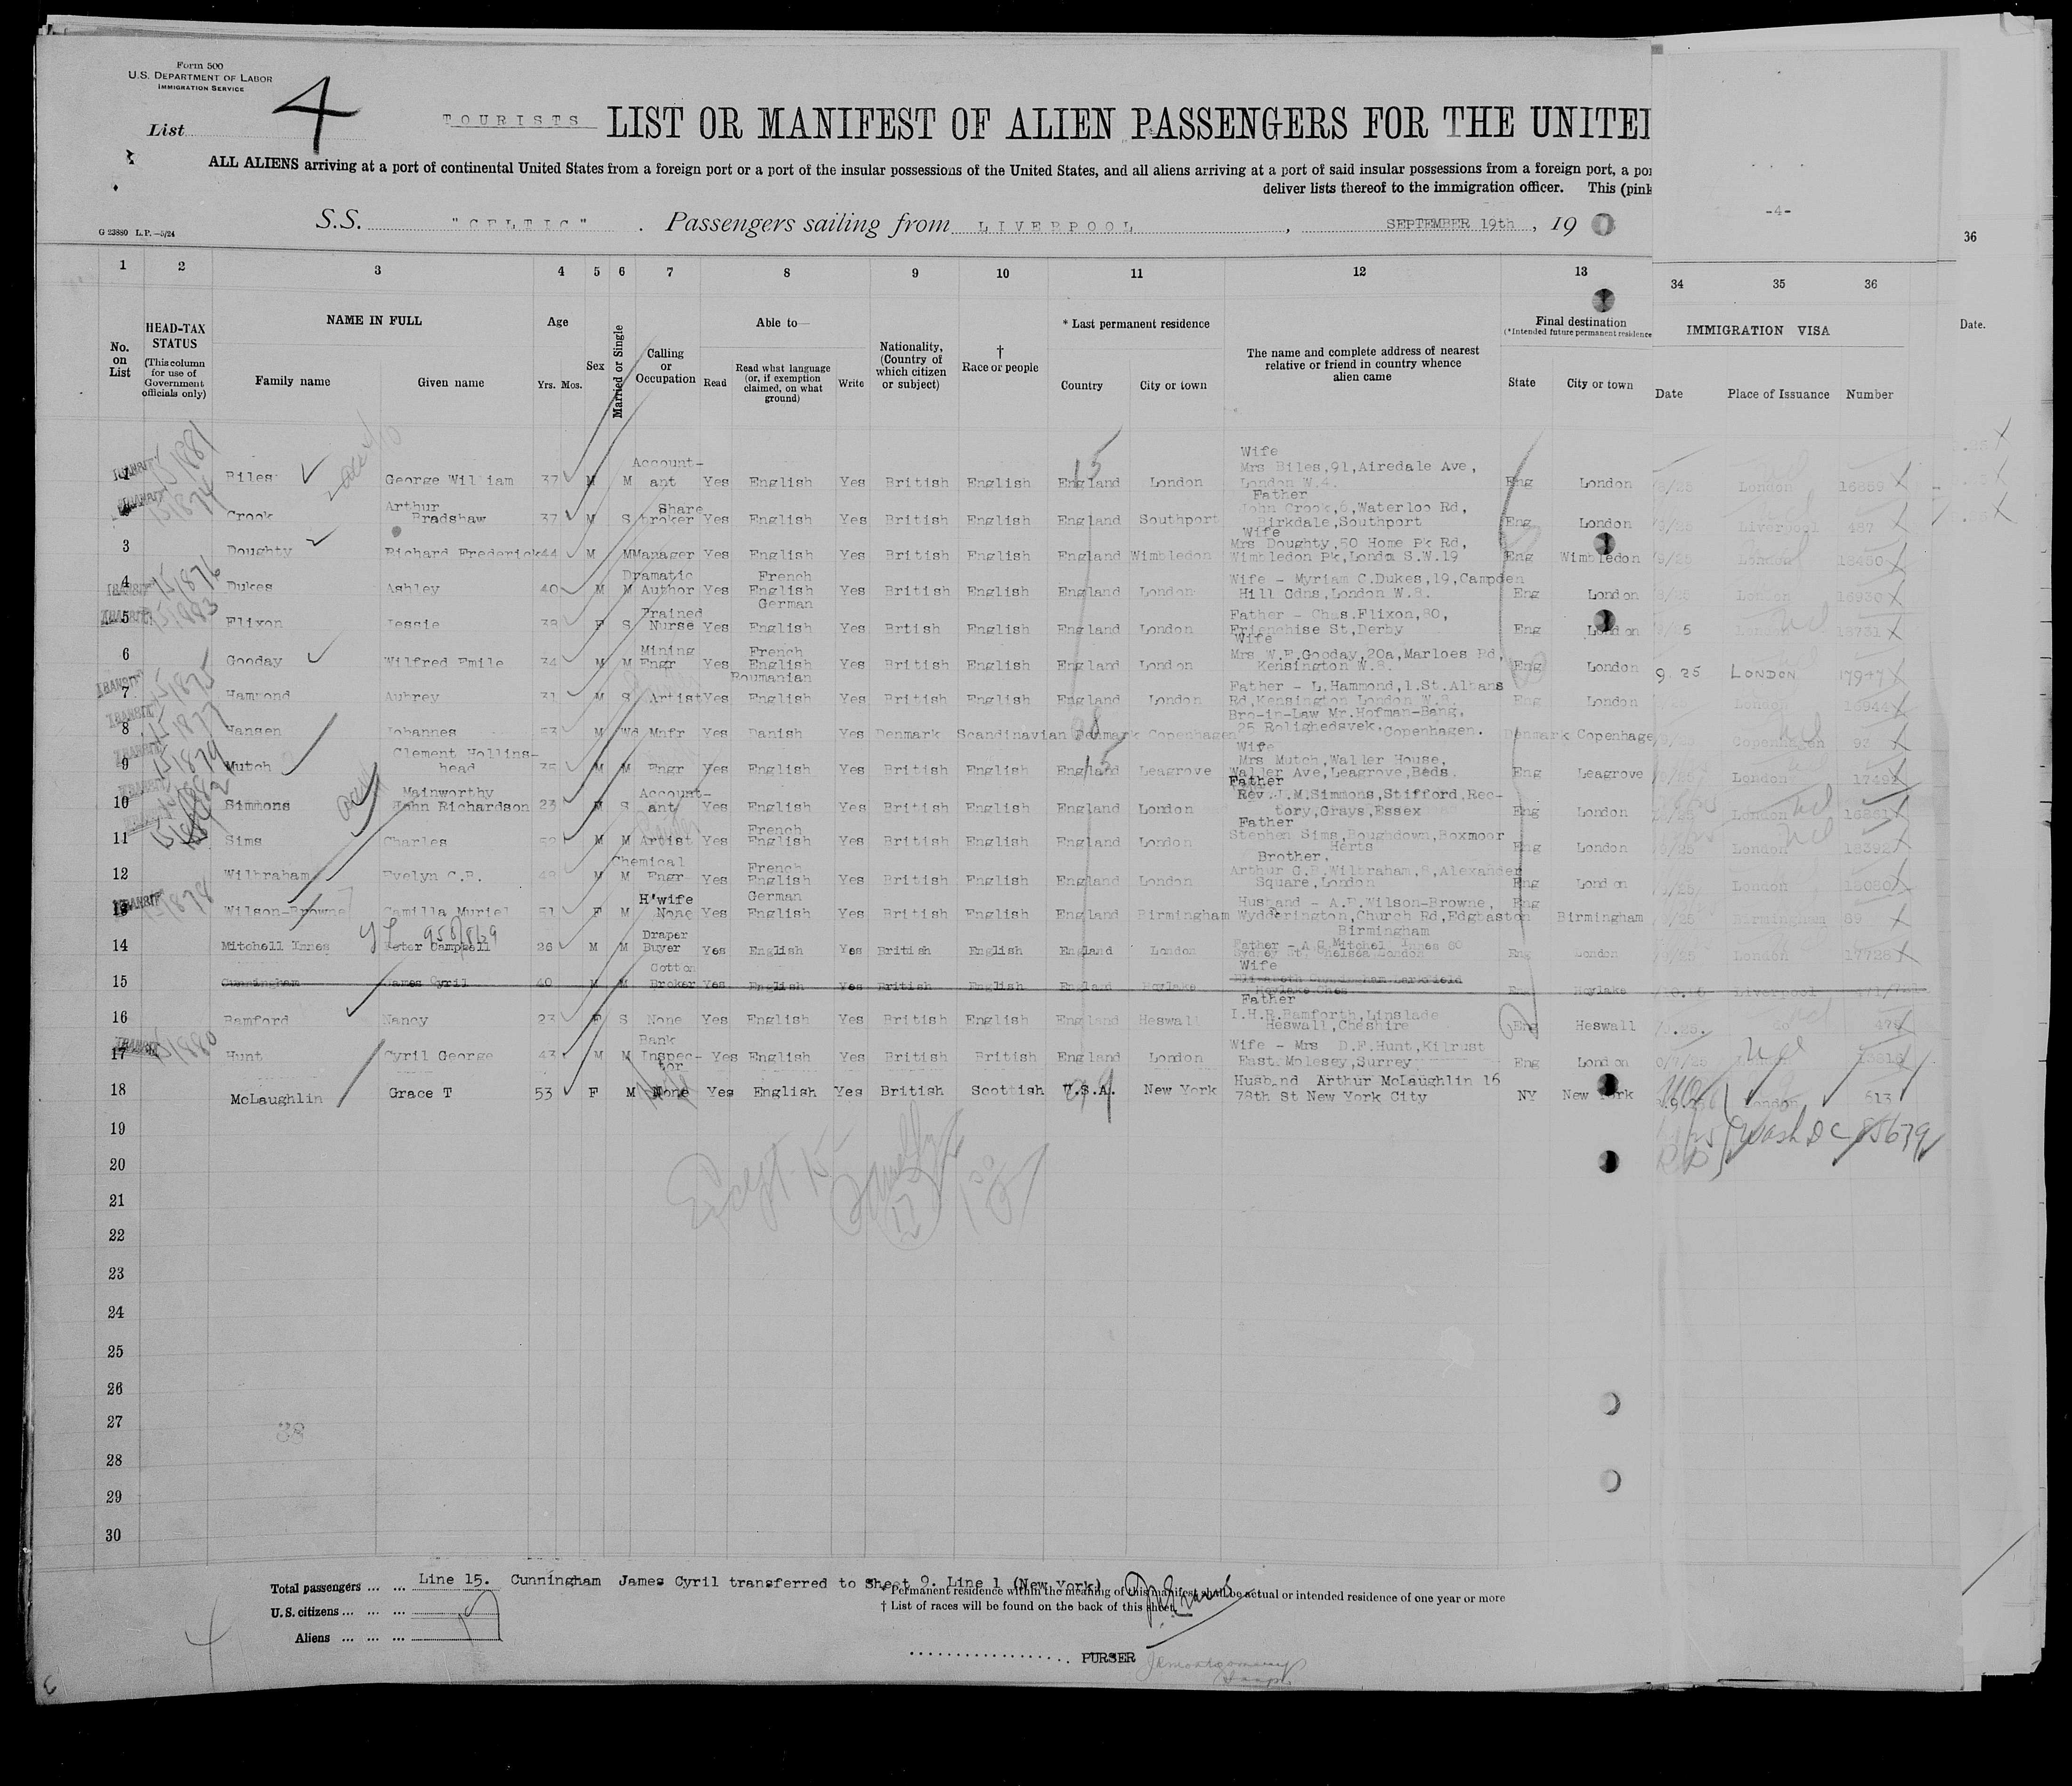 Form 500
U.S. DEPARTMENT OF LABOR
IMMIGRATION SERVICE
List 4
TOURISTS LIST OR MANIFEST OF ALIEN PASSENGERS FOR THE UNITE
ALL ALIENS arriving at a port of continental United States from a foreign port or a port of the insular possessions of the United States, and all aliens arriving at a port of said insular possessions from a foreign port, a por
deliver lists thereof to the immigration officer. This (pink
-4-
G 23880 L.P.—5/24
S.S. "CELTIC". Passengers sailing from LIVERPOOL, SEPTEMBER 19th, 19
36
1 2 3 4 5 6 7 8 9 10 11 12 13 34 35 36
No. on List
HEAD-TAX STATUS (This column for use of Government officials only)
NAME IN FULL
Family name Given name
Age
Yrs. Mos.
Sex
Married or Single
Calling or Occupation
Able to—
Read Read what language (or, if exemption claimed, on what ground) Write
Nationality, (Country of which citizen or subject)
† Race or people
* Last permanent residence
Country City or town
The name and complete address of nearest relative or friend in country whence alien came
Final destination
(*Intended future permanent residence
State City or town
IMMIGRATION VISA
Date Place of Issuance Number
Date.
Biles George William 37 M M Account-ant Yes English Yes British English England London Wife Mrs Biles,91,Airedale Ave, London W.4. Eng London 8/25 London 16859
Crook Arthur Bradshaw 37 M S Share broker Yes English Yes British English England Southport Father John Crook,6,Waterloo Rd, Birkdale,Southport Eng London Liverpool 487
3 Doughty Richard Frederick 44 M M Manager Yes English Yes British English England Wimbledon Wife Mrs Doughty,50 Home Pk Rd, Wimbledon Pk,London S.W.19 Eng Wimbledon 9/25 London 18450
4 Dukes Ashley 40 M M Dramatic Author Yes French English German Yes British English England London Wife - Myriam C.Dukes,19,Campden Hill Gdns,London W.8. Eng London 8/25 London 16930
5 Flixon Jessie 38 F S Trained Nurse Yes English Yes Brtish English England London Father - Chas.Flixon,80, St,Derby Eng London 5 London 18731
6 Gooday Wilfred Emile 34 M M Mining Engr Yes French English Roumanian Yes British English England London Wife Mrs W.E.Gooday,20a,Marloes Rd, Kensington W.8. Eng London 9. 25 LONDON 17947
7 Hammond Aubrey 31 M S Artist Yes English Yes British English England London Father - L.Hammond,1.St.Albans Rd,Kensington London W.8. Eng London London 16944
8 Hansen Johannes 53 M Wd Mnfr Yes Danish Yes Denmark Scandinavian Denmark Copenhagen Bro-in-Law Mr.Hofman-Bang, 25 Rolighedsvek,Copenhagen. Denmark Copenhage Copenhagen 93
9 Mutch Clement Hollins-head 35 M M Engr Yes English Yes British English England Leagrove Wife Mrs Mutch,Waller House, Waller Ave,Leagrove,Beds. Eng Leagrove London 1749
10 Simmons Mainworthy John Richardson 23 M S Account-ant Yes English Yes British English England London Father Rev.J.M.Simmons,Stifford,Rec-tory,Grays,Essex Eng London London 16851
11 Sims Charles 52 M M Artist Yes French English Yes British English England London Father Stephen Sims,Boughdown,Boxmoor Herts Eng London 9/25 London 18392
12 Wilbraham Evelyn C.B. 48 M M Chemical Engr Yes French English Yes British English England London Brother, Arthur G.B.Wilbraham,8,Alexander Square,London Eng London 9/25 London 18080
13 Wilson-Browne Camilla Muriel 51 F M H'wife None Yes German English Yes British English England Birmingham Husband - A.E.Wilson-Browne, Wydderington,Church Rd,Edgbaston Birmingham Eng Birmingham 9/25 Birmingham 89
14 Mitchell Innes Peter Campbell 26 M M Draper Buyer Yes English Yes British English England London Father - A C Mitchel Innes 80 Sydney St. Chelsea London Eng London 9/25 London 17728
15 Cunningham James Cyril 40 M M Cotton Broker Yes English Yes British English England Hoylake Wife Elizabeth Cunningham Larkfield Hoylake Ches Eng Hoylake Liverpool 471
16 Bamford Nancy 23 F S None Yes English Yes British English England Heswall Father I.H.R.Bamforth,Linslade Heswall,Cheshire Eng Heswall do 475
17 Hunt Cyril George 43 M M Bank Inspec-tor Yes English Yes British British England London Wife - Mrs D.F.Hunt,Kilrust East Molesey,Surrey Eng London London 13816
18 McLaughlin Grace T 53 F M None Yes English Yes British Scottish U.S.A. New York Husband Arthur McLaughlin 16 78th St New York City NY New York London 613
Wash D C 85679
19
20
21
22
23
24
25
26
27
28
29
30
Total passengers ... ... Line 15. Cunningham James Cyril transferred to Sheet 9. Line 1 (New York)
* Permanent residence within the meaning of this manifest shall be actual or intended residence of one year or more
U.S. citizens ... ... ...
† List of races will be found on the back of this sheet.
Aliens ... ... ...
PURSER